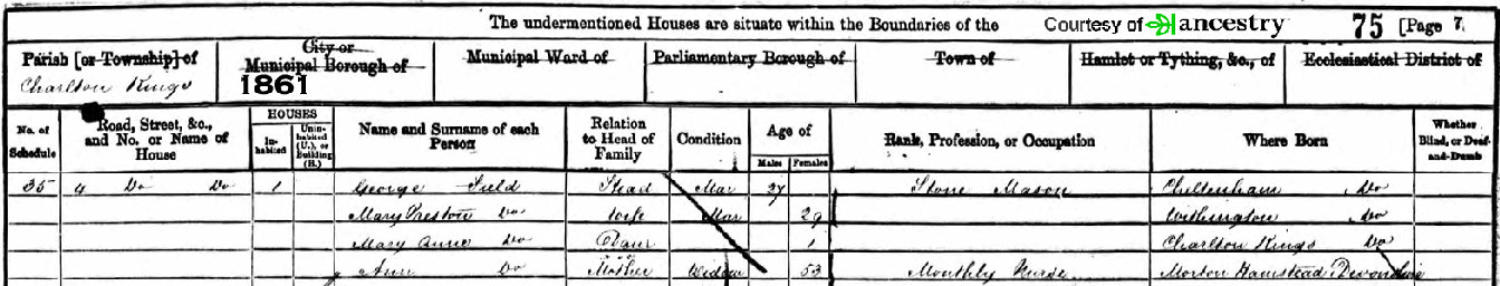 The undermentioned Houses are situate within the Boundaries of the Courtesy of ancestry 75 [Page 7.
Parish [or Township] of City or Municipal Borough of Municipal Ward of Parliamentary Borough of Town of Hamlet or Tything, &c., of Ecclesiastical District of
Charlton Kings 1861
No. of Schedule Road, Street, &c., and No. or Name of House HOUSES Inhabited Uninhabited (U.), or Building (B.) Name and Surname of each Person Relation to Head of Family Condition Age of Males Females Rank, Profession, or Occupation Where Born Whether Blind, or Deaf-and-Dumb
35 4 Do Do 1 George Field Head Mar 37 Stone Mason Cheltenham Do
Mary Preston Do Wife Mar 29 Withington Do
Mary Anne Do Daur 1 Charlton Kings Do
Ann Do Mother Widow 53 Monthly Nurse Morton Hamstead Devonshire